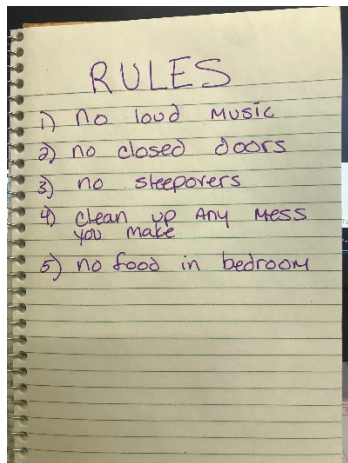 RULES
1) no loud music
2) no closed doors
3) no sleepovers
4) clean up any mess
you make
5) no food in bedroom